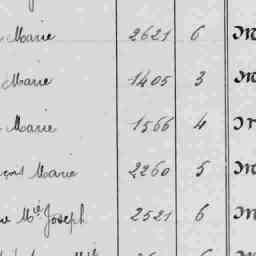 Marie 2621 6
Marie 1405 3
Marie 1566 4
Marie 2260 5
Mie Joseph 2521 6